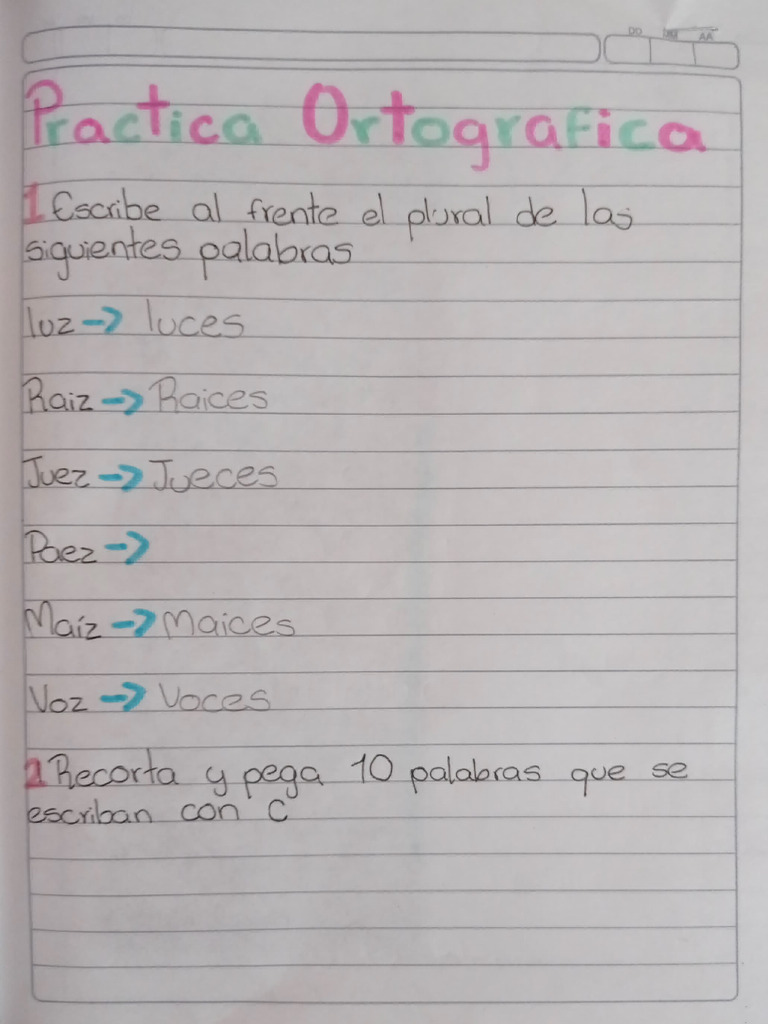 DD MM AA
Practica Ortografica
1 Escribe al frente el plural de las
siguientes palabras
luz -> luces
Raiz -> Raices
Juez -> Jueces
Paez ->
Maíz -> Maices
Voz -> Voces
2 Recorta y pega 10 palabras que se
escriban con C